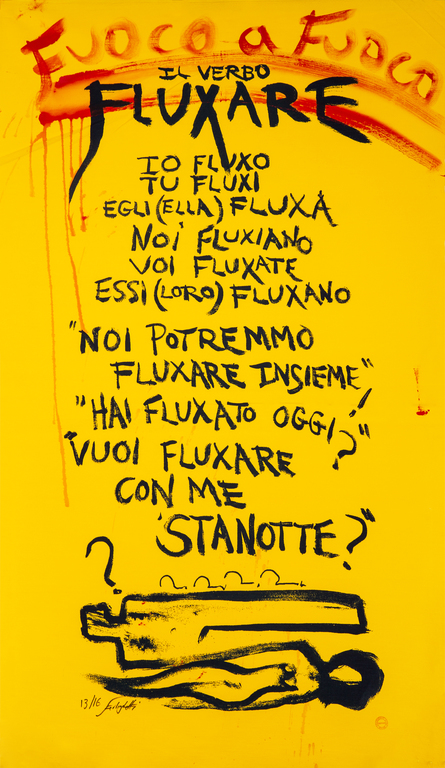 FUOCO a FUOCO
IL VERBO
FLUXARE
IO FLUXO
TU FLUXI
EGLI (ELLA) FLUXA
NOI FLUXIANO
VOI FLUXATE
ESSI (LORO) FLUXANO
"NOI POTREMMO
FLUXARE INSIEME"!
"HAI FLUXATO OGGI?"
"VUOI FLUXARE
CON ME
STANOTTE?"
?
? . ? . ? . ? .
13/16
e